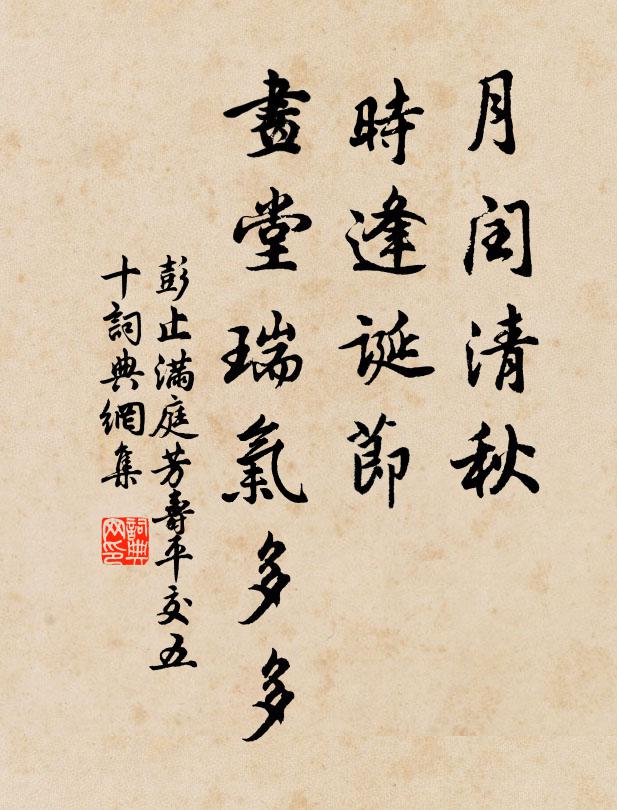 月閏清秋
時逢誕節
畫堂瑞氣多多
彭止滿庭芳壽平交五
十詞典網集
詞典
网印